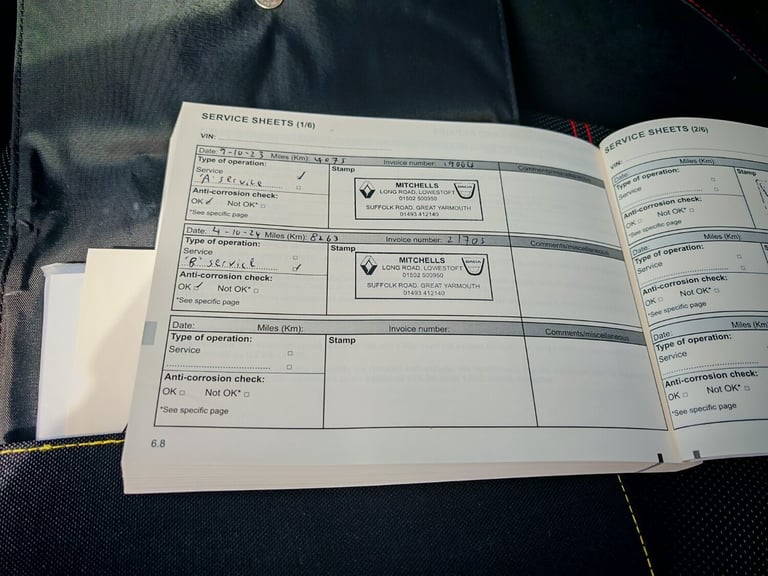 SERVICE SHEETS (1/6)
VIN:
Date: 9-10-23 Miles (Km): 4075 Invoice number: 19064 Comments/miscellaneous
Type of operation: Stamp
Service ✓
"A" service
Anti-corrosion check:
OK ✓ Not OK* □
*See specific page
MITCHELLS
LONG ROAD, LOWESTOFT
01502 500950
SUFFOLK ROAD, GREAT YARMOUTH
01493 412140
DACIA
Date: 4-10-24 Miles (Km): 8263 Invoice number: 21705 Comments/miscellaneous
Type of operation: Stamp
Service □
"B" service ✓
Anti-corrosion check:
OK ✓ Not OK* □
*See specific page
MITCHELLS
LONG ROAD, LOWESTOFT
01502 500950
SUFFOLK ROAD, GREAT YARMOUTH
01493 412140
DACIA
Date: Miles (Km): Invoice number: Comments/miscellaneous
Type of operation: Stamp
Service □
□
Anti-corrosion check:
OK □ Not OK* □
*See specific page
6.8
SERVICE SHEETS (2/6)
VIN:
Date: Miles (Km):
Type of operation: Stamp
Service □
□
Anti-corrosion check:
OK □ Not OK* □
*See specific page
Date: Miles (Km):
Type of operation:
Service □
□
Anti-corrosion check:
OK □ Not OK* □
*See specific page
Date: Miles (Km)
Type of operation:
Service
Anti-corrosion check:
OK □ Not OK* □
*See specific page